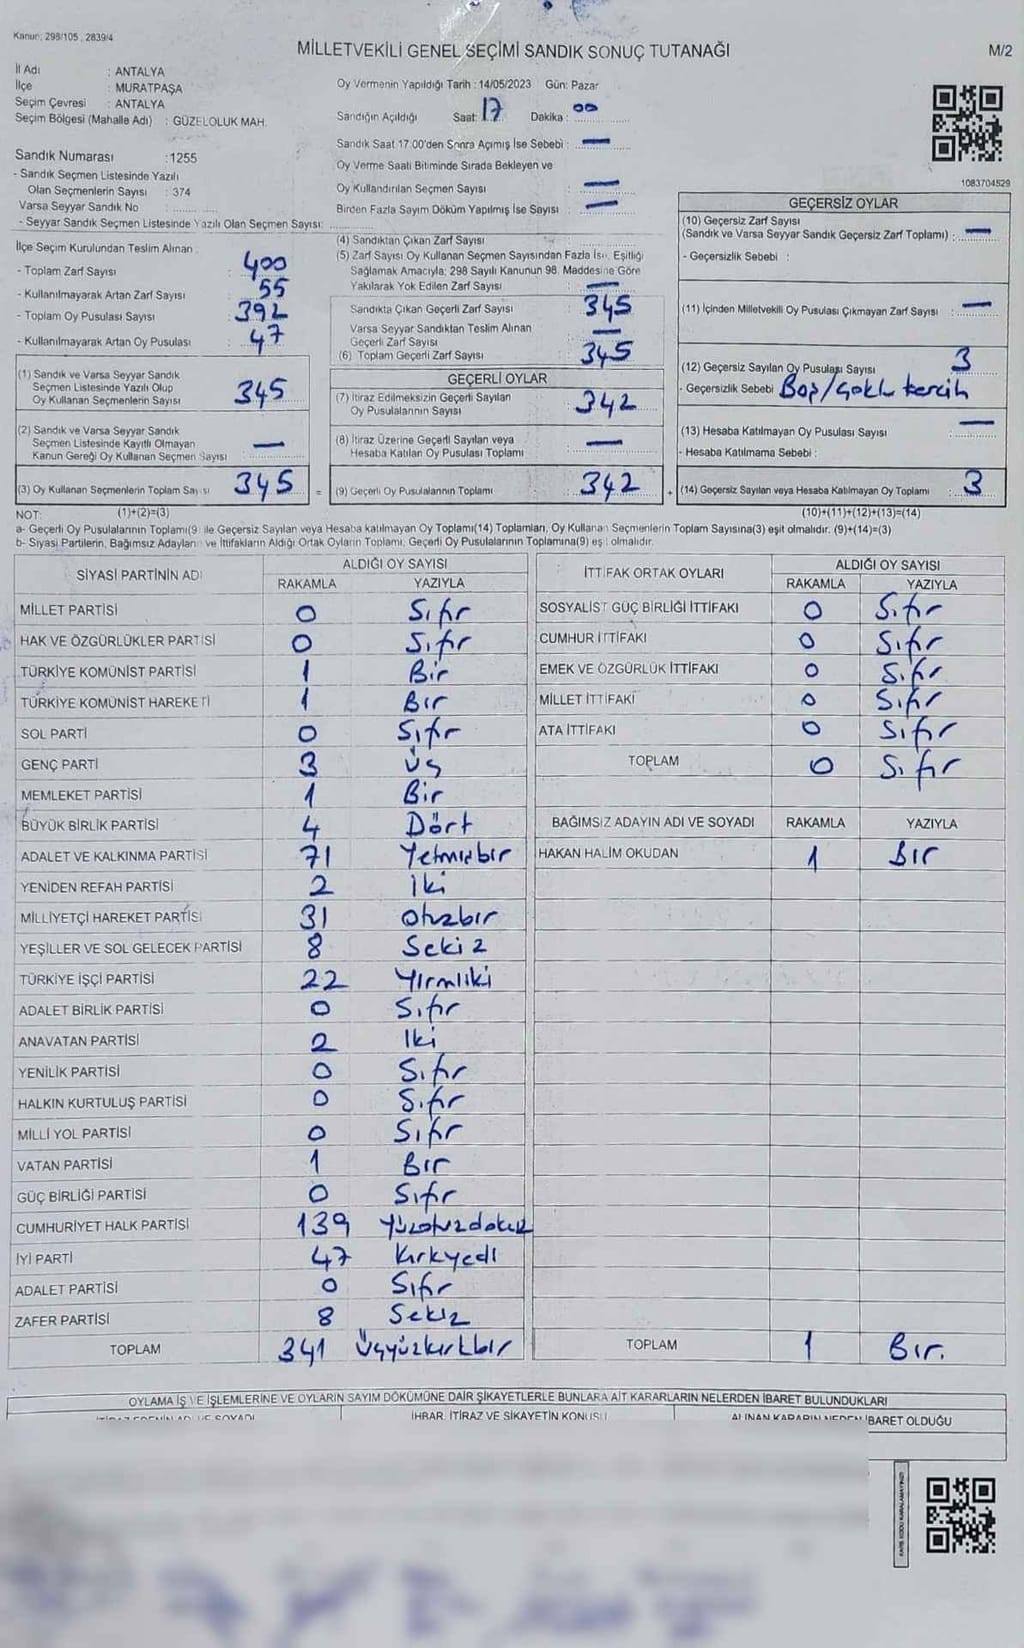 Kanun: 298/105, 2839/4
MİLLETVEKİLİ GENEL SEÇİMİ SANDIK SONUÇ TUTANAĞI
M/2
İl Adı : ANTALYA
İlçe : MURATPAŞA
Seçim Çevresi : ANTALYA
Seçim Bölgesi (Mahalle Adı) : GÜZELOLUK MAH.
Sandık Numarası :1255
- Sandık Seçmen Listesinde Yazılı
Olan Seçmenlerin Sayısı : 374
Varsa Seyyar Sandık No :
- Seyyar Sandık Seçmen Listesinde Yazılı Olan Seçmen Sayısı:
Oy Vermenin Yapıldığı Tarih : 14/05/2023 Gün: Pazar
Sandığın Açıldığı Saat: 17 Dakika : 00
Sandık Saat 17:00'den Sonra Açımış İse Sebebi : —
Oy Verme Saati Bitiminde Sırada Bekleyen ve
Oy Kullandırılan Seçmen Sayısı : —
Birden Fazla Sayım Döküm Yapılmış İse Sayısı : —
1083704529
İlçe Seçim Kurulundan Teslim Alınan :
- Toplam Zarf Sayısı : 400
- Kullanılmayarak Artan Zarf Sayısı : 55
- Toplam Oy Pusulası Sayısı : 392
- Kullanılmayarak Artan Oy Pusulası : 47
(1) Sandık ve Varsa Seyyar Sandık
Seçmen Listesinde Yazılı Olup
Oy Kullanan Seçmenlerin Sayısı : 345
(2) Sandık ve Varsa Seyyar Sandık
Seçmen Listesinde Kayıtlı Olmayan
Kanun Gereği Oy Kullanan Seçmen Sayısı : —
(3) Oy Kullanan Seçmenlerin Toplam Sayısı : 345 =
(4) Sandıktan Çıkan Zarf Sayısı :
(5) Zarf Sayısı Oy Kullanan Seçmen Sayısından Fazla İse, Eşitliği
Sağlamak Amacıyla; 298 Sayılı Kanunun 98. Maddesine Göre
Yakılarak Yok Edilen Zarf Sayısı : —
Sandıkta Çıkan Geçerli Zarf Sayısı : 345
Varsa Seyyar Sandıktan Teslim Alınan
Geçerli Zarf Sayısı : —
(6) Toplam Geçerli Zarf Sayısı : 345
GEÇERLİ OYLAR
(7) İtiraz Edilmeksizin Geçerli Sayılan
Oy Pusulalarının Sayısı : 342
(8) İtiraz Üzerine Geçerli Sayılan veya
Hesaba Katılan Oy Pusulası Toplamı : —
(9) Geçerli Oy Pusulalarının Toplamı : 342 +
GEÇERSİZ OYLAR
(10) Geçersiz Zarf Sayısı
(Sandık ve Varsa Seyyar Sandık Geçersiz Zarf Toplamı) : —
- Geçersizlik Sebebi :
(11) İçinden Milletvekili Oy Pusulası Çıkmayan Zarf Sayısı : —
(12) Geçersiz Sayılan Oy Pusulası Sayısı : 3
- Geçersizlik Sebebi : Boş/Çoklu tercih
(13) Hesaba Katılmayan Oy Pusulası Sayısı : —
- Hesaba Katılmama Sebebi :
(14) Geçersiz Sayılan veya Hesaba Katılmayan Oy Toplamı : 3
NOT: (1)+(2)=(3) (10)+(11)+(12)+(13)=(14)
a- Geçerli Oy Pusulalarının Toplamı(9) ile Geçersiz Sayılan veya Hesaba katılmayan Oy Toplamı(14) Toplamları, Oy Kullanan Seçmenlerin Toplam Sayısına(3) eşit olmalıdır. (9)+(14)=(3)
b- Siyasi Partilerin, Bağımsız Adayların ve İttifakların Aldığı Ortak Oyların Toplamı, Geçerli Oy Pusulalarının Toplamına(9) eşit olmalıdır.
SİYASİ PARTİNİN ADI ALDIĞI OY SAYISI
RAKAMLA YAZIYLA
MİLLET PARTİSİ 0 Sıfır
HAK VE ÖZGÜRLÜKLER PARTİSİ 0 Sıfır
TÜRKİYE KOMÜNİST PARTİSİ 1 Bir
TÜRKİYE KOMÜNİST HAREKETİ 1 Bir
SOL PARTİ 0 Sıfır
GENÇ PARTİ 3 Üç
MEMLEKET PARTİSİ 1 Bir
BÜYÜK BİRLİK PARTİSİ 4 Dört
ADALET VE KALKINMA PARTİSİ 71 Yetmişbir
YENİDEN REFAH PARTİSİ 2 İki
MİLLİYETÇİ HAREKET PARTİSİ 31 Otuzbir
YEŞİLLER VE SOL GELECEK PARTİSİ 8 Sekiz
TÜRKİYE İŞÇİ PARTİSİ 22 Yirmiiki
ADALET BİRLİK PARTİSİ 0 Sıfır
ANAVATAN PARTİSİ 2 İki
YENİLİK PARTİSİ 0 Sıfır
HALKIN KURTULUŞ PARTİSİ 0 Sıfır
MİLLİ YOL PARTİSİ 0 Sıfır
VATAN PARTİSİ 1 Bir
GÜÇ BİRLİĞİ PARTİSİ 0 Sıfır
CUMHURİYET HALK PARTİSİ 139 Yüzotuzdokuz
İYİ PARTİ 47 Kırkyedi
ADALET PARTİSİ 0 Sıfır
ZAFER PARTİSİ 8 Sekiz
TOPLAM 341 Üçyüzkırkbir
İTTİFAK ORTAK OYLARI ALDIĞI OY SAYISI
RAKAMLA YAZIYLA
SOSYALİST GÜÇ BİRLİĞİ İTTİFAKI 0 Sıfır
CUMHUR İTTİFAKI 0 Sıfır
EMEK VE ÖZGÜRLÜK İTTİFAKI 0 Sıfır
MİLLET İTTİFAKI 0 Sıfır
ATA İTTİFAKI 0 Sıfır
TOPLAM 0 Sıfır
BAĞIMSIZ ADAYIN ADI VE SOYADI RAKAMLA YAZIYLA
HAKAN HALİM OKUDAN 1 Bir
TOPLAM 1 Bir.
OYLAMA İŞ VE İŞLEMLERİNE VE OYLARIN SAYIM DÖKÜMÜNE DAİR ŞİKAYETLERLE BUNLARA AİT KARARLARIN NELERDEN İBARET BULUNDUKLARI
İTİRAZ EDENİN ADI VE SOYADI İHBAR, İTİRAZ VE ŞİKAYETİN KONUSU ALINAN KARARIN NEDEN İBARET OLDUĞU
KARE KODU KARALAMAYINIZ!